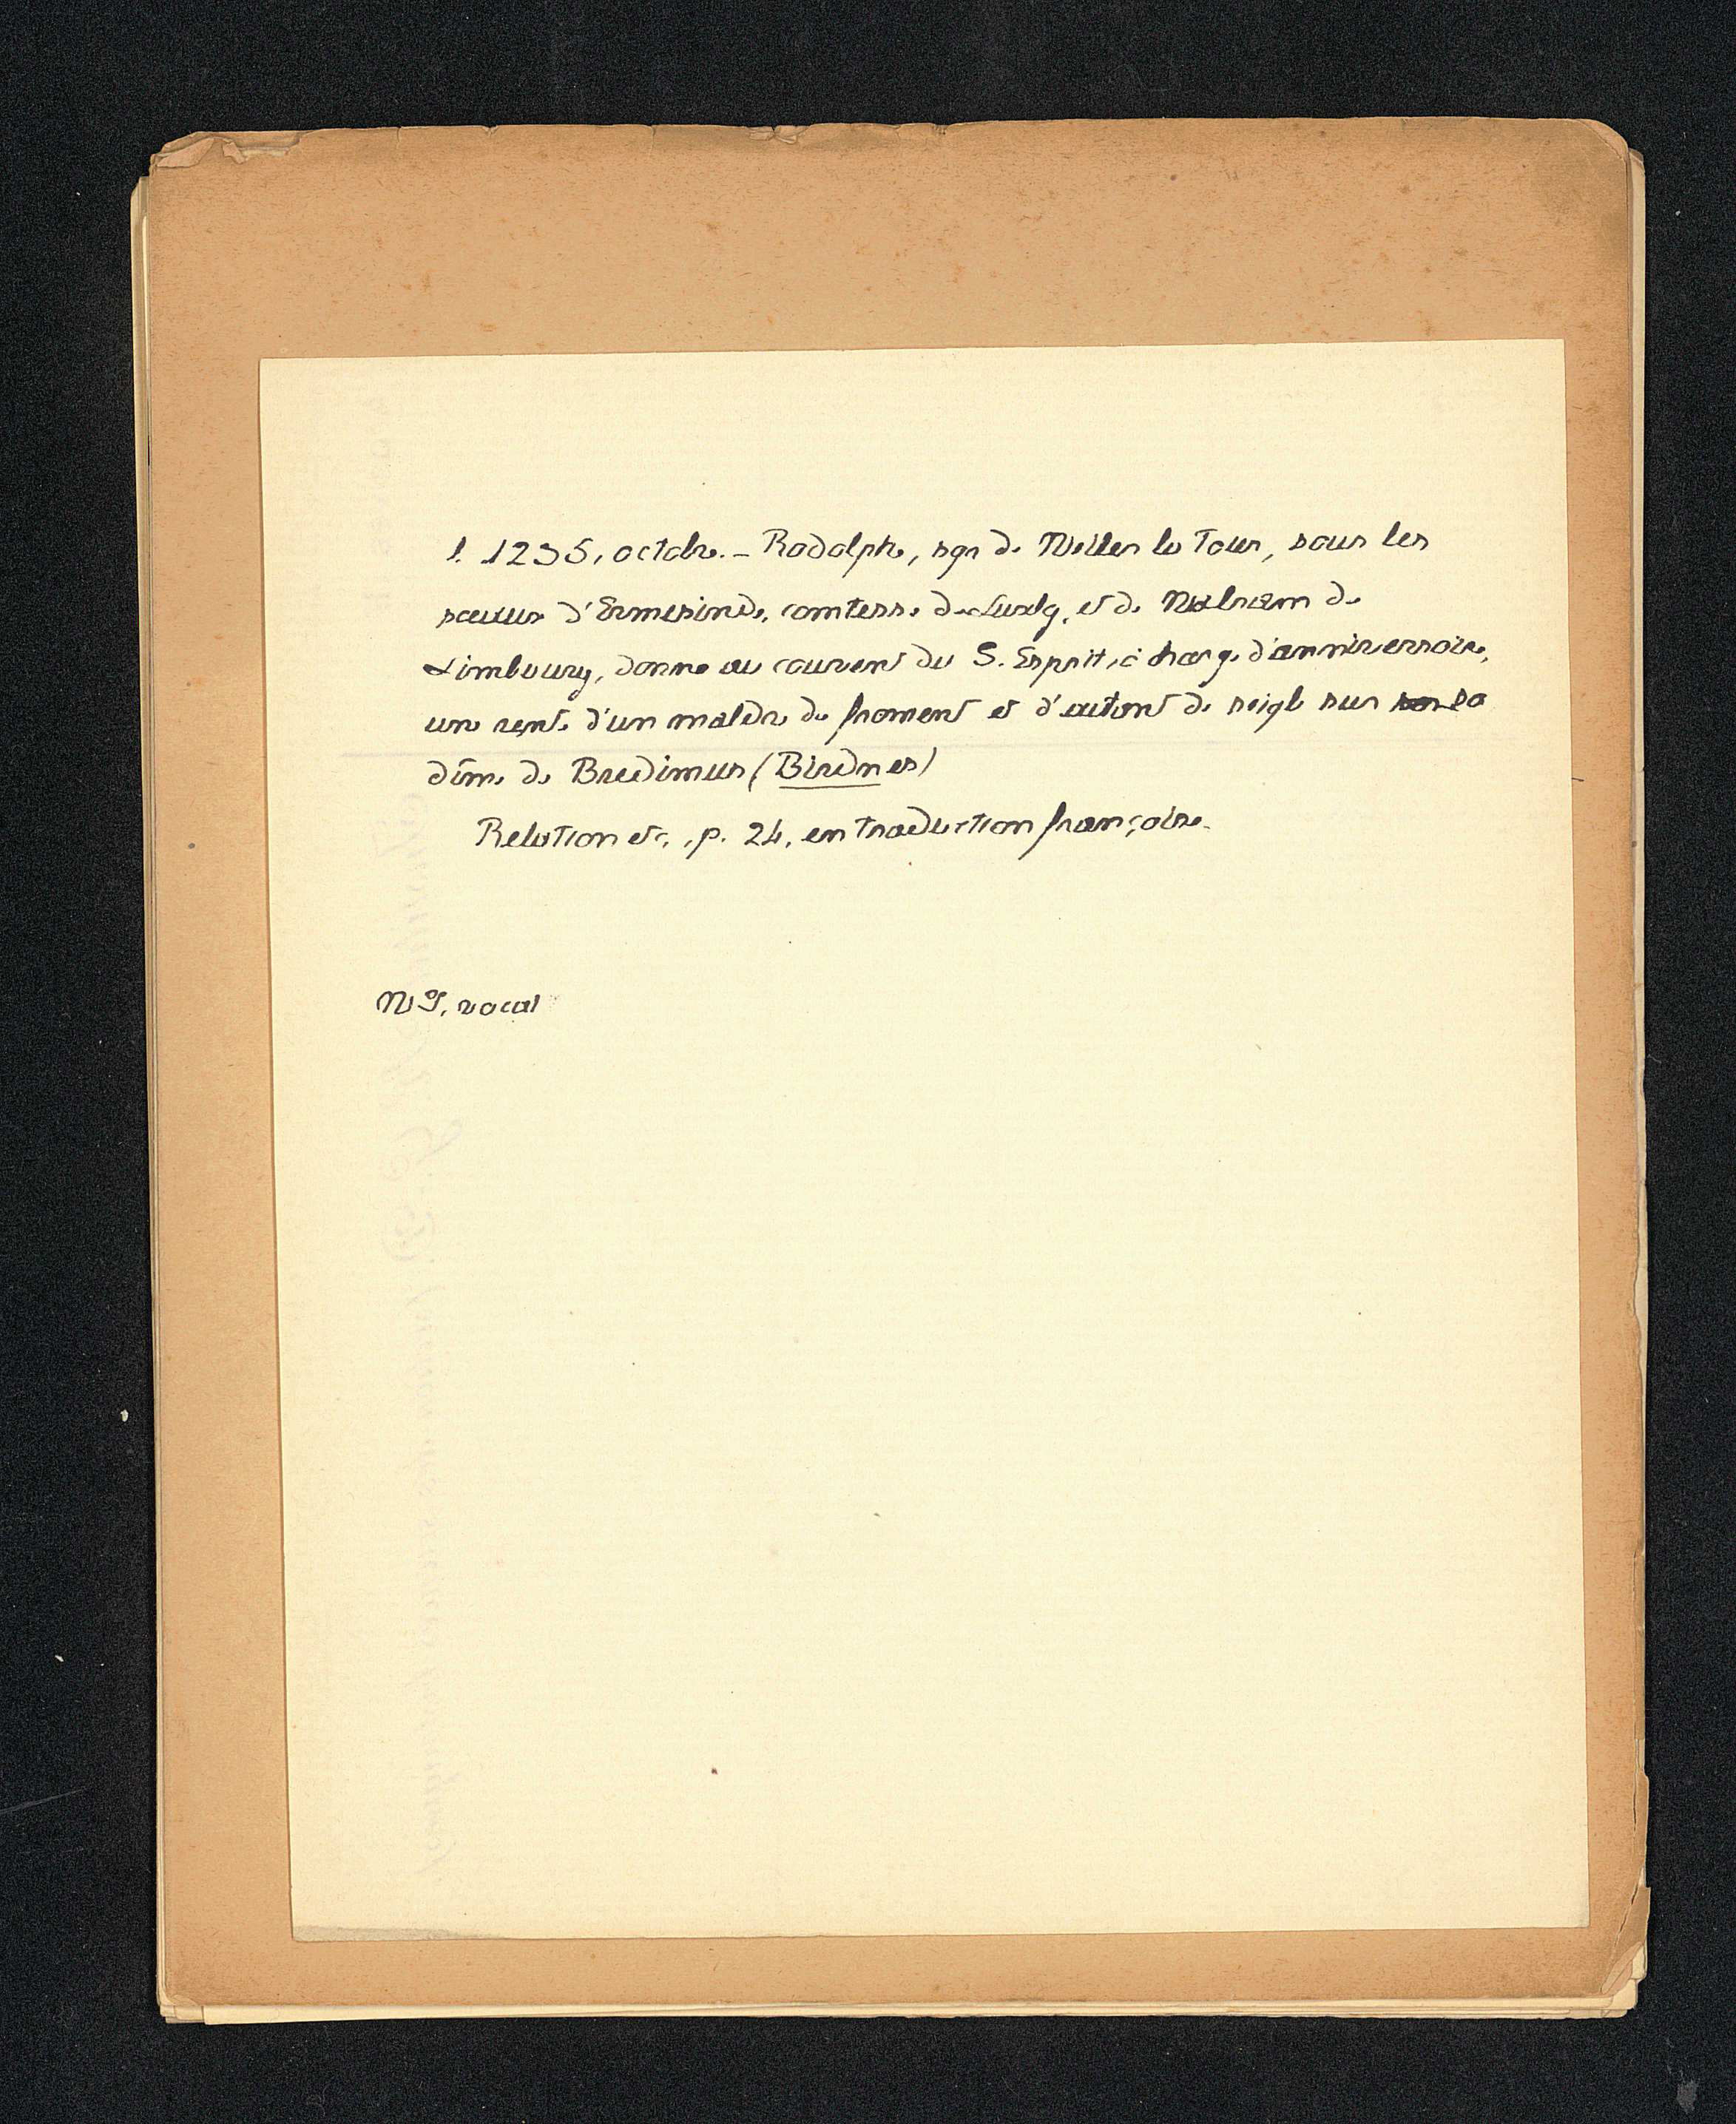 1. 1235, octobre. – Rodolphe, sgr de Meller la Tour, sous les
sceaux d'Ermesinde, comtesse de Luxbg, et de Walram de
Limbourg, donne au couvent du S. Esprit, à charge d'anniversaire,
une rente d'un maldre de froment et d'autant de seigle sur sa
dîme de Bredimus (Birdnes)
Relation etc., p. 24, en traduction française.
vocat